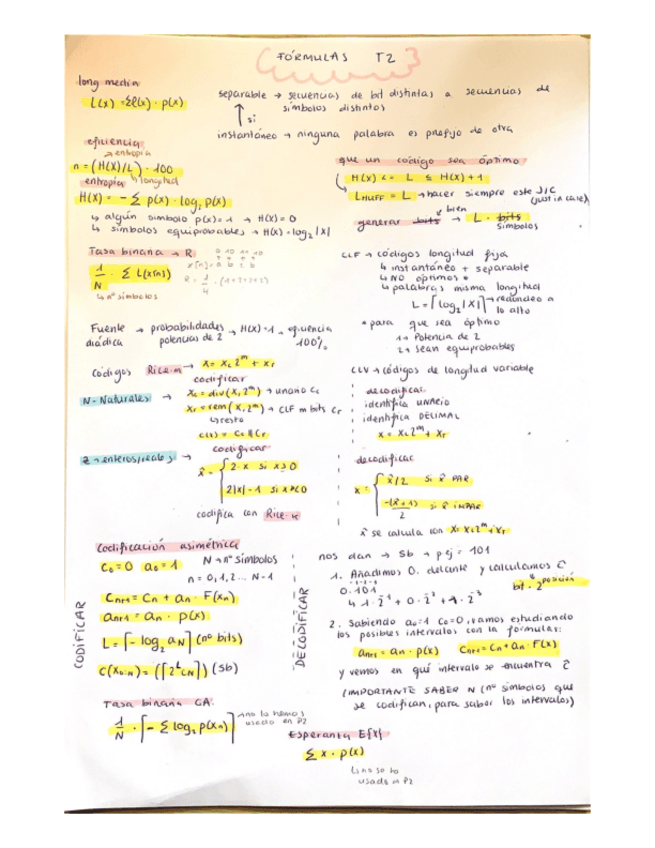 FÓRMULAS T2
long media
L(x) = Σℓ(x) · p(x)
separable → secuencias de bit distintas a secuencias de
símbolos distintos
↑ si
instantáneo → ninguna palabra es prefijo de otra
eficiencia
→ entropía
n = (H(x)/L) · 100
↳ longitud
entropía
H(x) = - Σ p(x) · log₂ p(x)
↳ algún símbolo p(x) = 1 → H(x) = 0
↳ símbolos equiprobables → H(x) = log₂ |X|
que un código sea óptimo
H(x) ≤ L ≤ H(x) + 1
L HUFF = L → hacer siempre este
(just in case)
bien
generar bits → L · bits
símbolos
Tasa binaria → R
1/N · Σ L(x[n])
↳ nº símbolos
CLF → códigos longitud fija
↳ instantáneo + separable
↳ NO óptimos *
↳ palabras misma longitud
L = ⌈log₂ |X|⌉ → redondeo a
lo alto
* para que sea óptimo
1 → Potencia de 2
2 → Sean equiprobables
Fuente → probabilidades → H(x) = 1 → eficiencia
diádica potencias de 2 100%
Códigos Rice-m → x = x_c 2^m + x_r
codificar
N - Naturales → x_c = div(x, 2^m) → unario C_c
x_r = rem(x, 2^m) → CLF m bits C_r
↳ resto
c(x) = C_c || C_r
CLV → códigos de longitud variable
decodificar
identifica UNARIO
identifica DECIMAL
x = x_c 2^m + x_r
codificar
x̂ = { 2·x si x ≥ 0
2|x| - 1 si x < 0
codifica con Rice-m
decodificar
x = { x̂/2 si x̂ PAR
-(x̂+1)/2 si x̂ IMPAR
x̂ se calcula con x = x_c 2^m + x_r
Codificación asimétrica
C₀ = 0 a₀ = 1 N → nº símbolos
n = 0, 1, 2 ... N-1
CODIFICAR
C_{n+1} = C_n + a_n · F(x_n)
a_{n+1} = a_n · p(x)
L = ⌈- log₂ a_N⌉ (nº bits)
C(x_{0:N}) = (⌈2^L C_N⌉) (Sb)
DECODIFICAR
nos dan → Sb → pej = 101
1. Añadimos 0. delante y calculamos Ĉ
0.101
↳ 1·2⁻¹ + 0·2⁻² + 1·2⁻³
bit · 2^posición
2. Sabiendo a₀=1 C₀=0, vamos estudiando
los posibles intervalos con la fórmulas:
a_{n+1} = a_n · p(x) C_{n+1} = C_n + a_n · F(x)
y vemos en qué intervalo se encuentra Ĉ
(IMPORTANTE SABER N (nº símbolos que
se codifican, para saber los intervalos)
Tasa binaria CA:
1/N · ⌈- Σ log₂ p(x_n)⌉ → no lo hemos
usado en P2
Esperanza E{X}
Σ x · p(x)
↳ no se ha
usado en P2